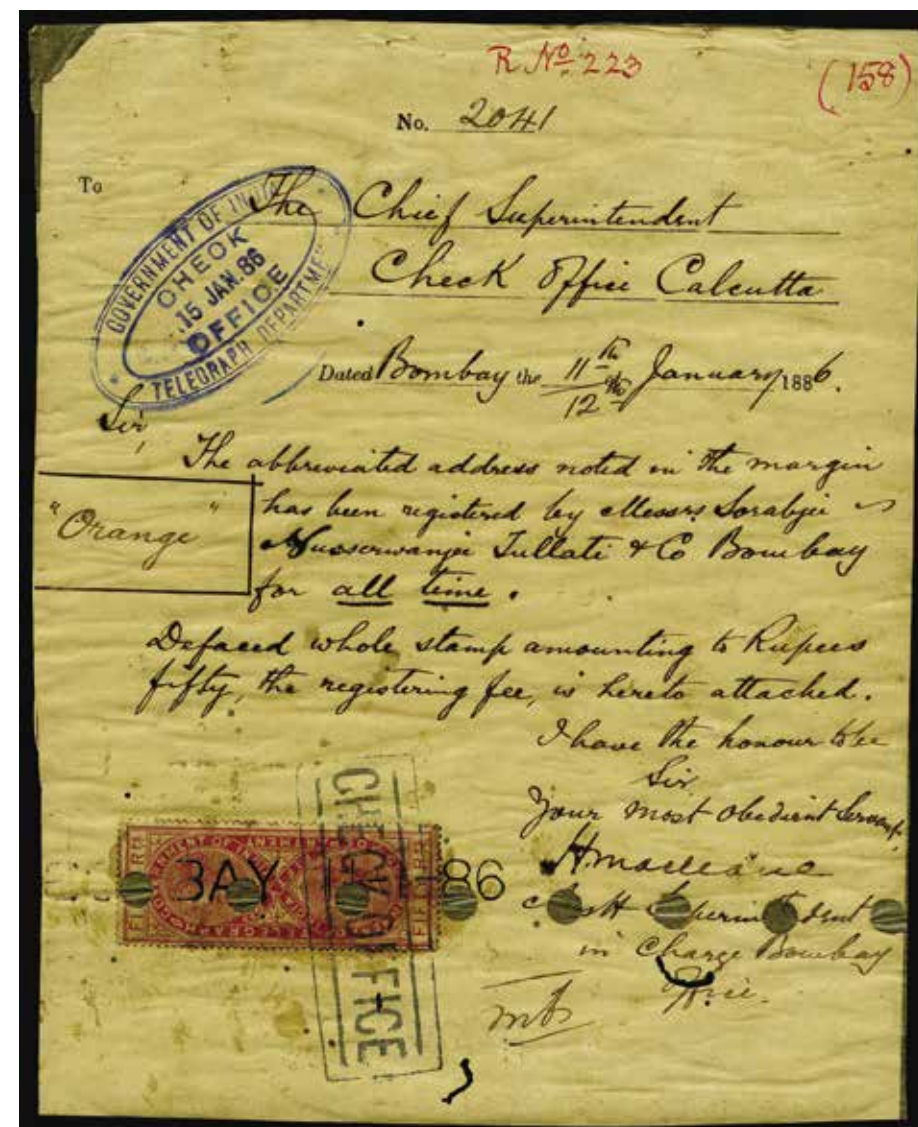 R Nº 223
(158)
No. 2041
To
The Chief Superintendent
Check Office Calcutta
GOVERNMENT OF INDIA
CHECK
15 JAN. 86
OFFICE
TELEGRAPH DEPARTME
Dated Bombay the 11th/12th January 1886.
Sir,
The abbreviated address noted in the margin
"Orange"
has been registered by Messrs Sorabjee
Nusserwanjee Tullati & Co Bombay
for all time.
Defaced whole stamp amounting to Rupees
fifty, the registering fee, is hereto attached.
I have the honour to be
Sir
Your most obedient Servant,
Asst Superintendent
in Charge Bombay
Office.
BAY
86
CHECK OFFICE